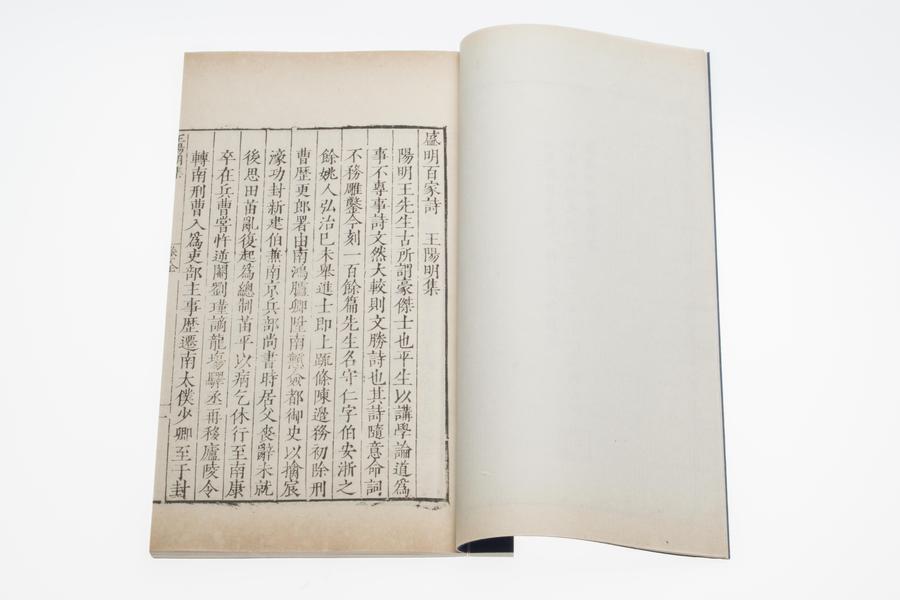 盛明百家詩　王陽明集
陽明王先生古所謂豪傑士也平生以講學論道爲
事不專事詩文然大較則文勝詩也其詩隨意命詞
不務雕鑿今刻一百餘篇先生名守仁字伯安浙之
餘姚人弘治己未舉進士即上疏條陳邊務初除刑
曹歷更郎署由南鴻臚卿陞南贛僉都御史以擒宸
濠功封新建伯兼南京兵部尚書時居父喪辭未就
後思田苗亂復起爲總制苗平以病乞休行至南康
卒在兵曹嘗忤逆閹劉瑾謫龍場驛丞再移廬陵令
轉南刑曹入爲吏部主事歷遷南太僕少卿至于封
王陽明集